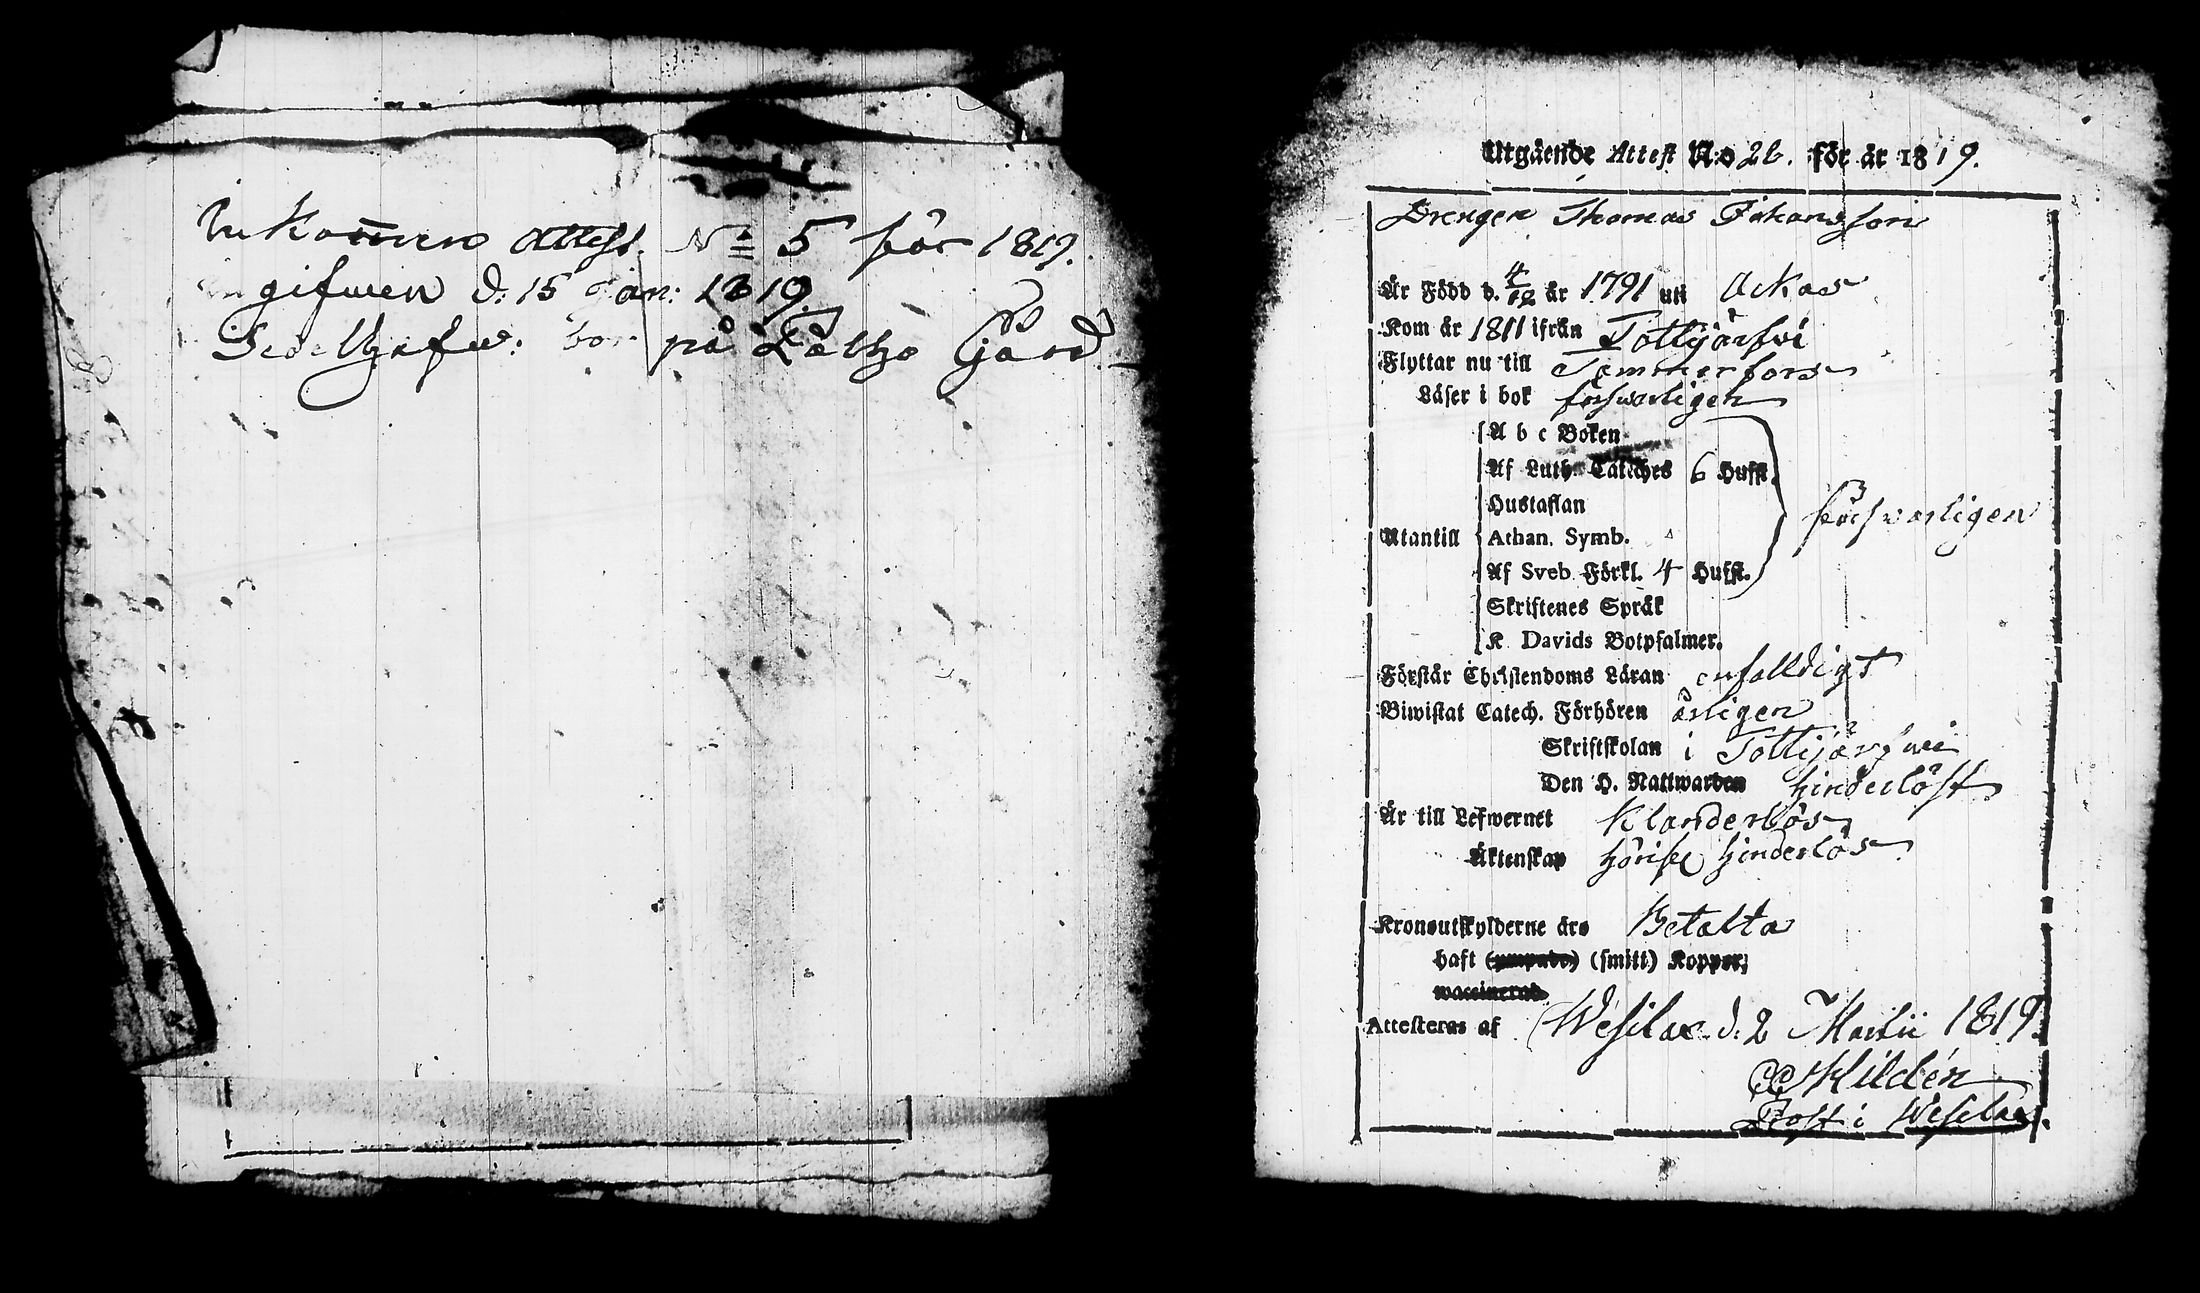 Inkommen Attest. No 5 för 1819.
gifwen d. 15 Jan: 1819
på Laitzo Gård.
Utgående Attest N:o 26. för år 1819.
Drengen Thomas Johansson
Är Född d. 4/12 år 1791 uti Ackas
Kom år 1811 ifrån Tottijärfvi
Flyttar nu till Tammerfors
Läser i bok försvarligen
A b c Boken
Af Luth. Cateches 6 Hufst.
Hustaflan
Utantill Athan. Symb. försvarligen
Af Sveb. Förkl. 4 Hufst.
Skriftenes Språk
K. Davids Botpsalmer.
Förstår Christendoms Läran enfaldigt
Biwistat Catech. Förhören årligen
Skriftskolan i Tottijärfwi
Den H. Nattwarden hinderlöst
Är till Lefwernet Klanderlös
Äktenskap hinderlös
Kronoutskylderne äro Betalta
haft (ympade) (smitt) Kopper;
waccinerad
Attesteras af Wesilax d. 2 Martii 1819
Hildén
Prost i Wesilax.